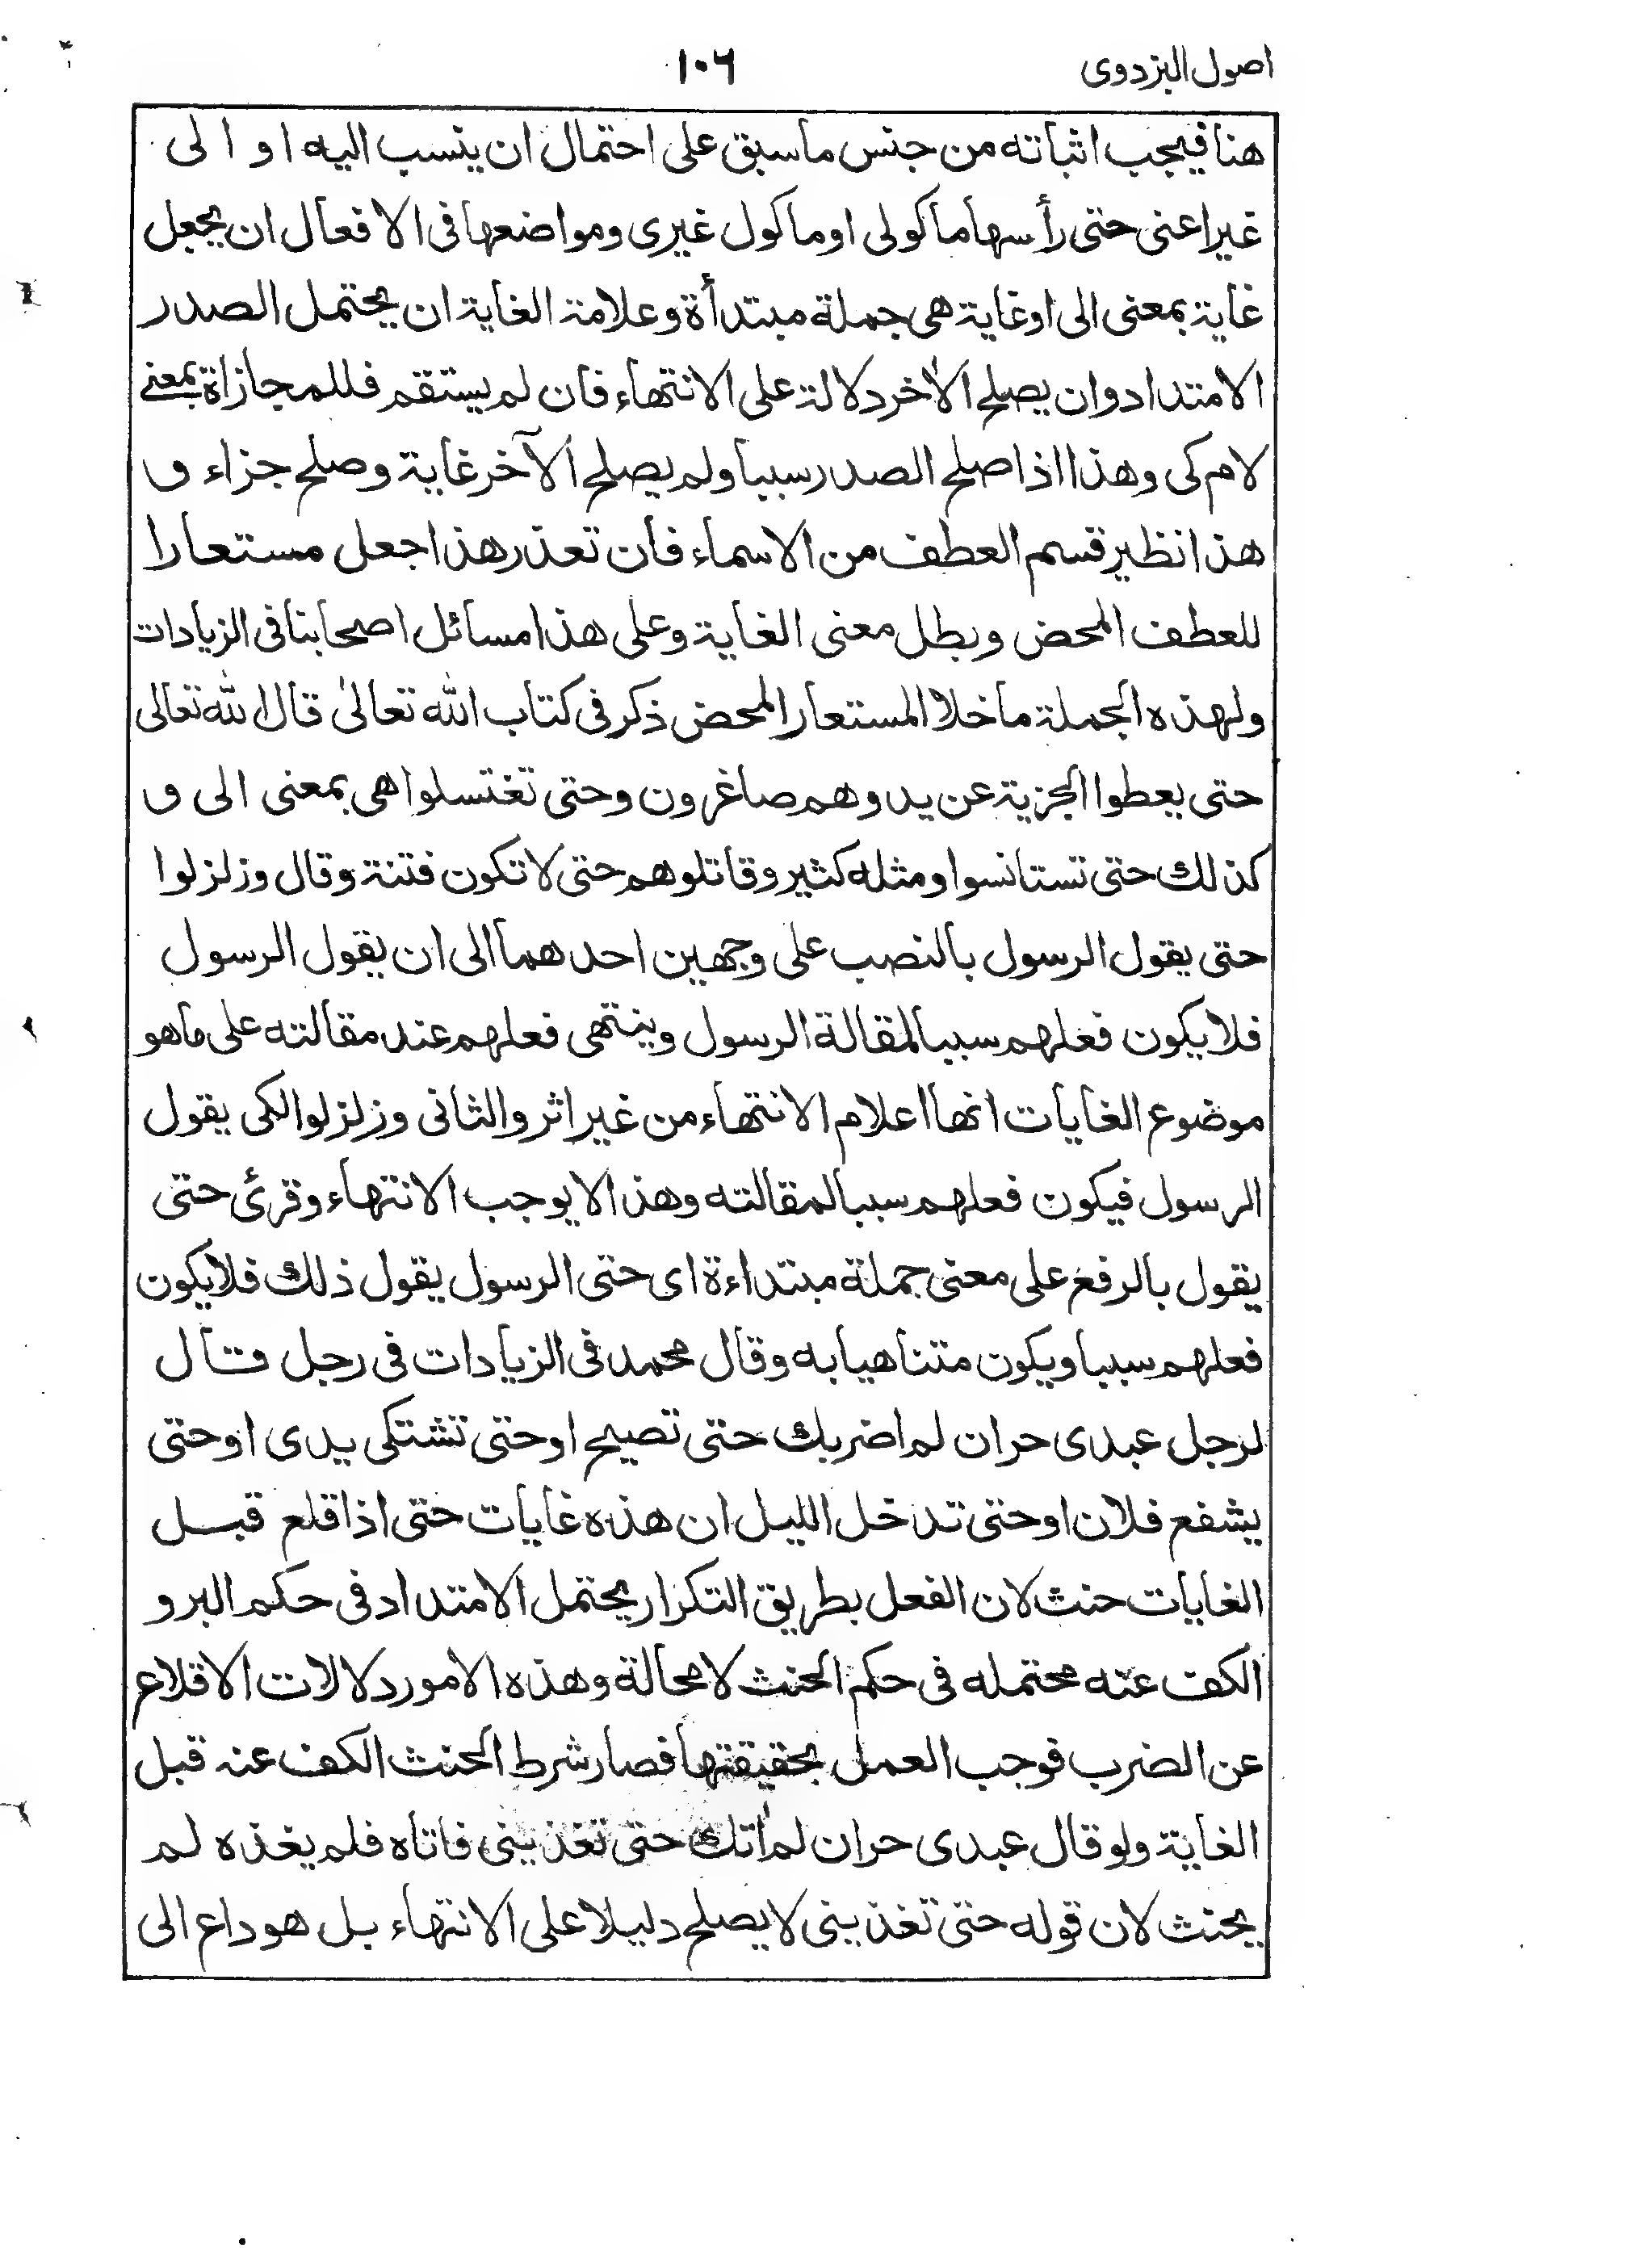 اصول البزدوى
١٠٦
هنا فيجب اثباته من جنس ما سبق على احتمال ان ينسب اليه او الى
غير اعنى حتى رأسها ماكولى او ماكول غيرى ومواضعها فى الافعال ان يجعل
غاية بمعنى الى او غاية هى جملة مبتدأة وعلامة الغاية ان يحتمل الصدر
الامتداد وان يصلح الاٰخر دلالة على الانتهاء فان لم يستقم فللمجازاة بمعنے
لام كى وهذا اذا صلح الصدر سببا ولم يصلح الآخر غاية وصلح جزاء و
هذا نظير قسم العطف من الاسماء فان تعذر هذا جعل مستعارا
للعطف المحض وبطل معنى الغاية وعلى هذا مسائل اصحابنا فى الزيادات
ولهذه الجملة ما خلا المستعار المحض ذكر فى كتاب الله تعالىٰ قال الله تعالى
حتى يعطوا الجزية عن يد وهم صاغرون وحتى تغتسلوا هى بمعنى الى و
كذلك حتى تستانسوا ومثله كثير وقاتلوهم حتى لا تكون فتنة وقال وزلزلوا
حتى يقول الرسول بالنصب على وجهين احدهما الى ان يقول الرسول
فلا يكون فعلهم سببا لمقالة الرسول وينتهى فعلهم عند مقالته على ما هو
موضوع الغايات انها اعلام الانتهاء من غير اثر والثانى وزلزلوا لكى يقول
الرسول فيكون فعلهم سببا لمقالته وهذا لا يوجب الانتهاء وقرئ حتى
يقول بالرفع على معنى جملة مبتداءة اى حتى الرسول يقول ذلك فلا يكون
فعلهم سببا ويكون متناهيا به وقال محمد فى الزيادات فى رجل قال
لرجل عبدى حر ان لم اضربك حتى تصيح او حتى تشتكى يدى او حتى
يشفع فلان او حتى تدخل الليل ان هذه غايات حتى اذا قلع قبل
الغايات حنث لان الفعل بطريق التكرار يحتمل الامتداد فى حكم البر و
الكف عنه محتمله فى حكم الحنث لا محالة وهذه الامور دلالات الاقلاع
عن الضرب فوجب العمل بحقيقتها فصار شرط الحنث الكف عنه قبل
الغاية ولو قال عبدى حر ان لم اٰتك حتى تغذينى فاتاه فلم يغذه لم
يحنث لان قوله حتى تغذينى لا يصلح دليلا على الانتهاء بل هو داع الى